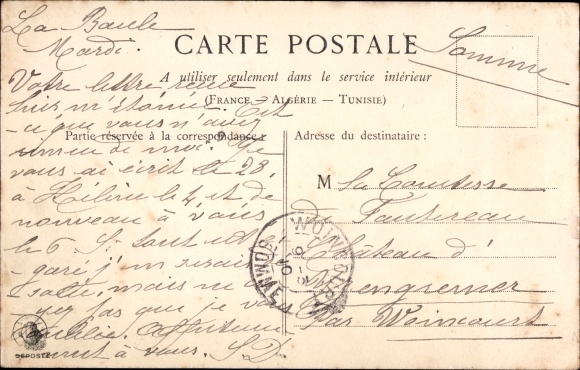 La Baule
Mardi.
CARTE POSTALE
Somme
A utiliser seulement dans le service intérieur
(FRANCE, ALGÉRIE — TUNISIE)
Partie réservée à la correspondance :
Adresse du destinataire :
Votre lettre reçue
hier m'étonne. Est
-ce que vous n'avez
rien eu de moi? Je
vous ai écrit le 28,
à Hélène le 4 et de
nouveau à vous
le 6. S'ils sont
égaré j'en
mais ne
pas que je vous
oublie. Affectueu
sement à vous. S.D.
M la Comtesse
de
Château d'
par Woincourt
WOINCOURT
SOMME
DÉPOSÉ